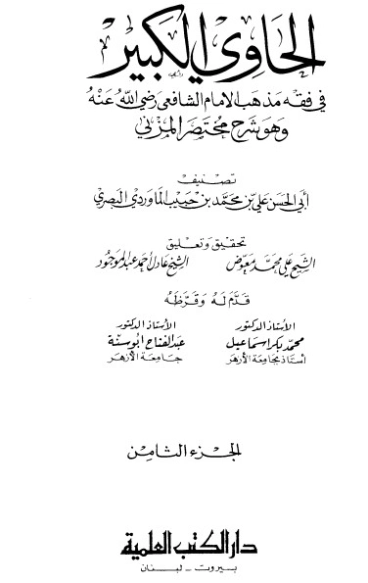 الحاوي الكبير
في فقه مذهب الإمام الشافعي رضي الله عنه
وهو شرح مختصر المزني
تصنيف
أبي الحسن علي بن محمد بن حبيب الماوردي البصري
تحقيق وتعليق
الشيخ علي محمد معوض الشيخ عادل أحمد عبد الموجود
قدم له وقرظه
الأستاذ الدكتور الأستاذ الدكتور
محمد بكر إسماعيل عبد الفتاح أبو سنة
أستاذ بجامعة الأزهر جامعة الأزهر
الجزء الثامن
دار الكتب العلمية
بيروت - لبنان